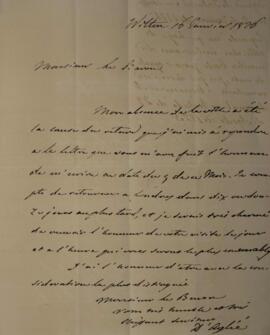 Wilton 16 Janvier 1826
Monsieur le Baron
Mon absence de la ville a été
la cause du retard que j'ai mis à répondre
à la lettre que vous m'avez fait l'honneur
de m'écrire en date du 9 de ce Mois. Je compte
de retourner à Londres dans dix ou douze
jours au plus tard, et je serais très charmé
de avoir l'honneur de votre visite le jour
et à l'heure qui vous seront le plus convenables
J'ai l'honneur d'être avec la considération
la plus distinguée
Monsieur le Baron
Votre très humble et très
obéissant serviteur
D'Aglié